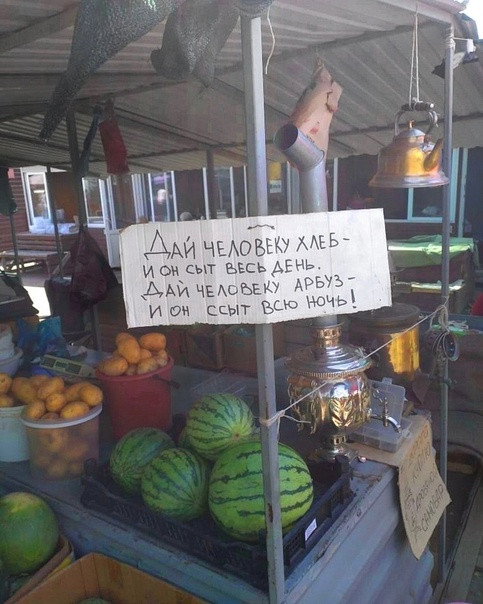 Дай человеку хлеб -
и он сыт весь день.
Дай человеку арбуз -
и он ссыт всю ночь!